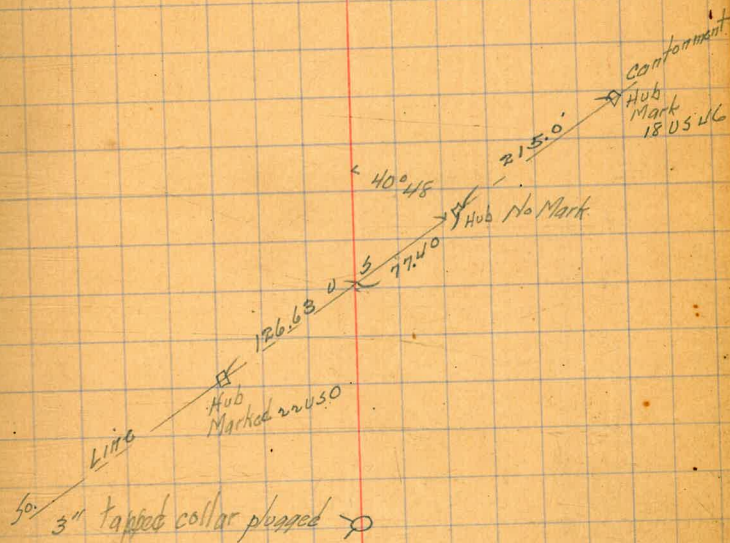 Cantonment
Hub
Mark
18 US 46
215.0'
< 40° 48
Hub No Mark
77.40
U S
126.63
Hub
Marked 22 US 0
Line
So.
3" tapped collar plugged